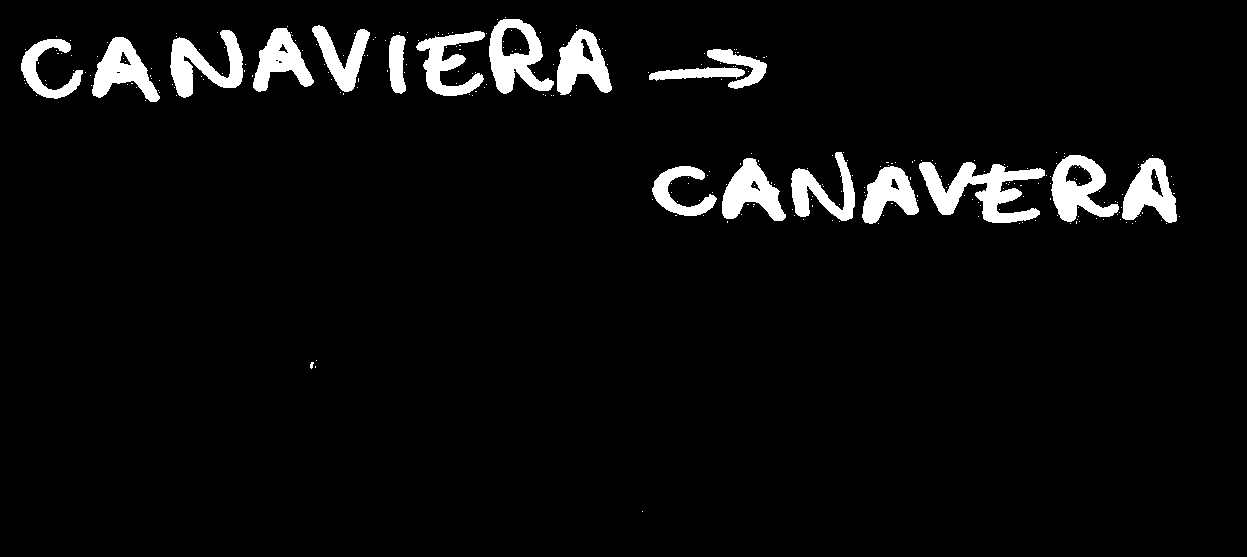 CANAVIERA →
CANAVERA